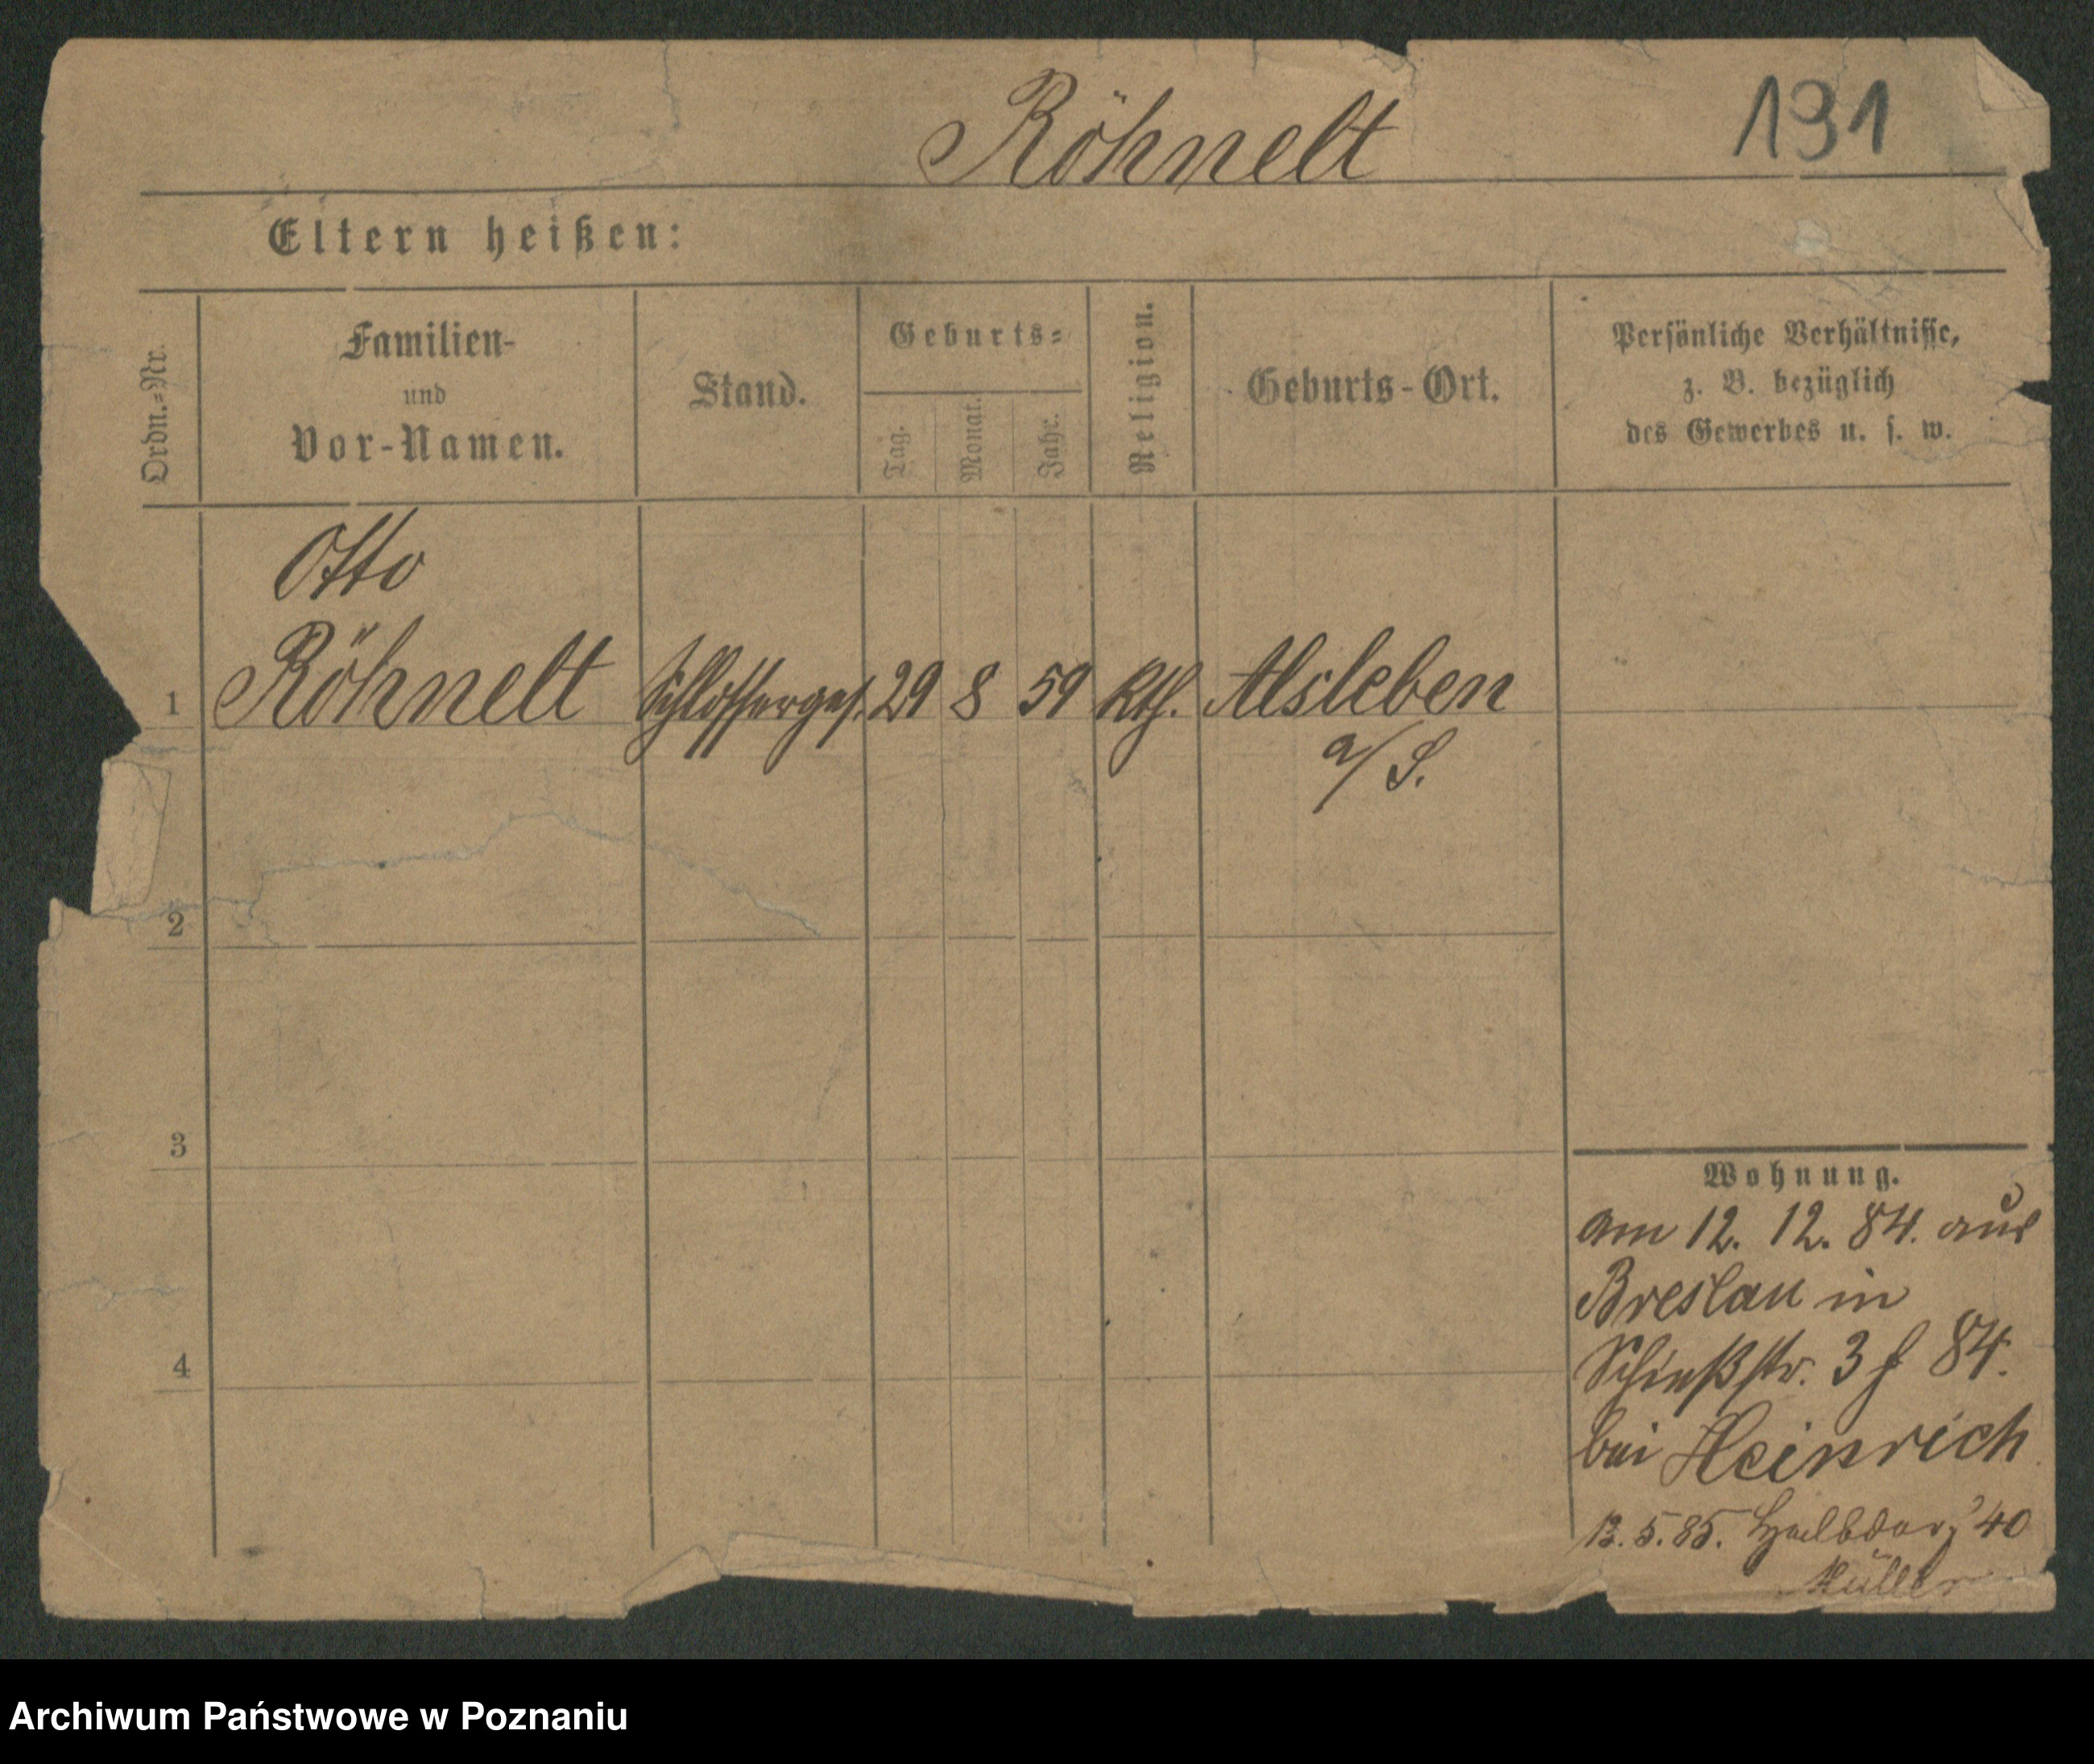 Röhnelt 191
Eltern heißen:
Ordn.=Nr.
Familien-
und
Vor-Namen.
Stand.
Geburts=
Tag.
Monat.
Jahr.
Religion.
Geburts-Ort.
Persönliche Verhältnisse,
z. B. bezüglich
des Gewerbes u. s. w.
Otto
1 Röhnelt Schlosserges. 29 8 59 kth. Alsleben
a/S.
2
3
4
Wohnung.
am 12. 12. 84. aus
Breslau in
Schießstr. 3 84.
bei Heinrich
13. 5. 85. Halbdorf 40
Müller
Archiwum Państwowe w Poznaniu